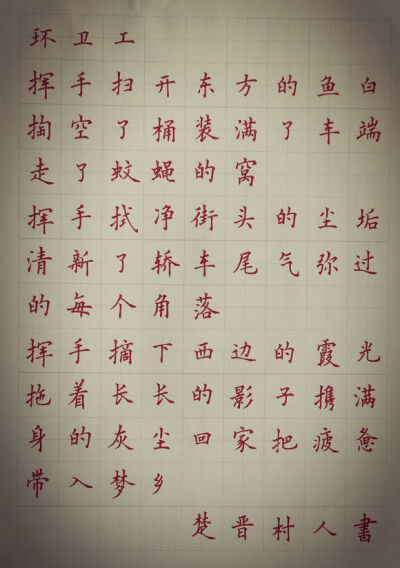 环卫工
挥手扫开东方的鱼白
掏空了桶装满了车端
走了蚊蝇的窝
挥手拭净街头的尘垢
清新了轿车尾气弥过
的每个角落
挥手摘下西边的霞光
拖着长长的影子携满
身的灰尘回家把疲惫
带入梦乡
楚晋村人書